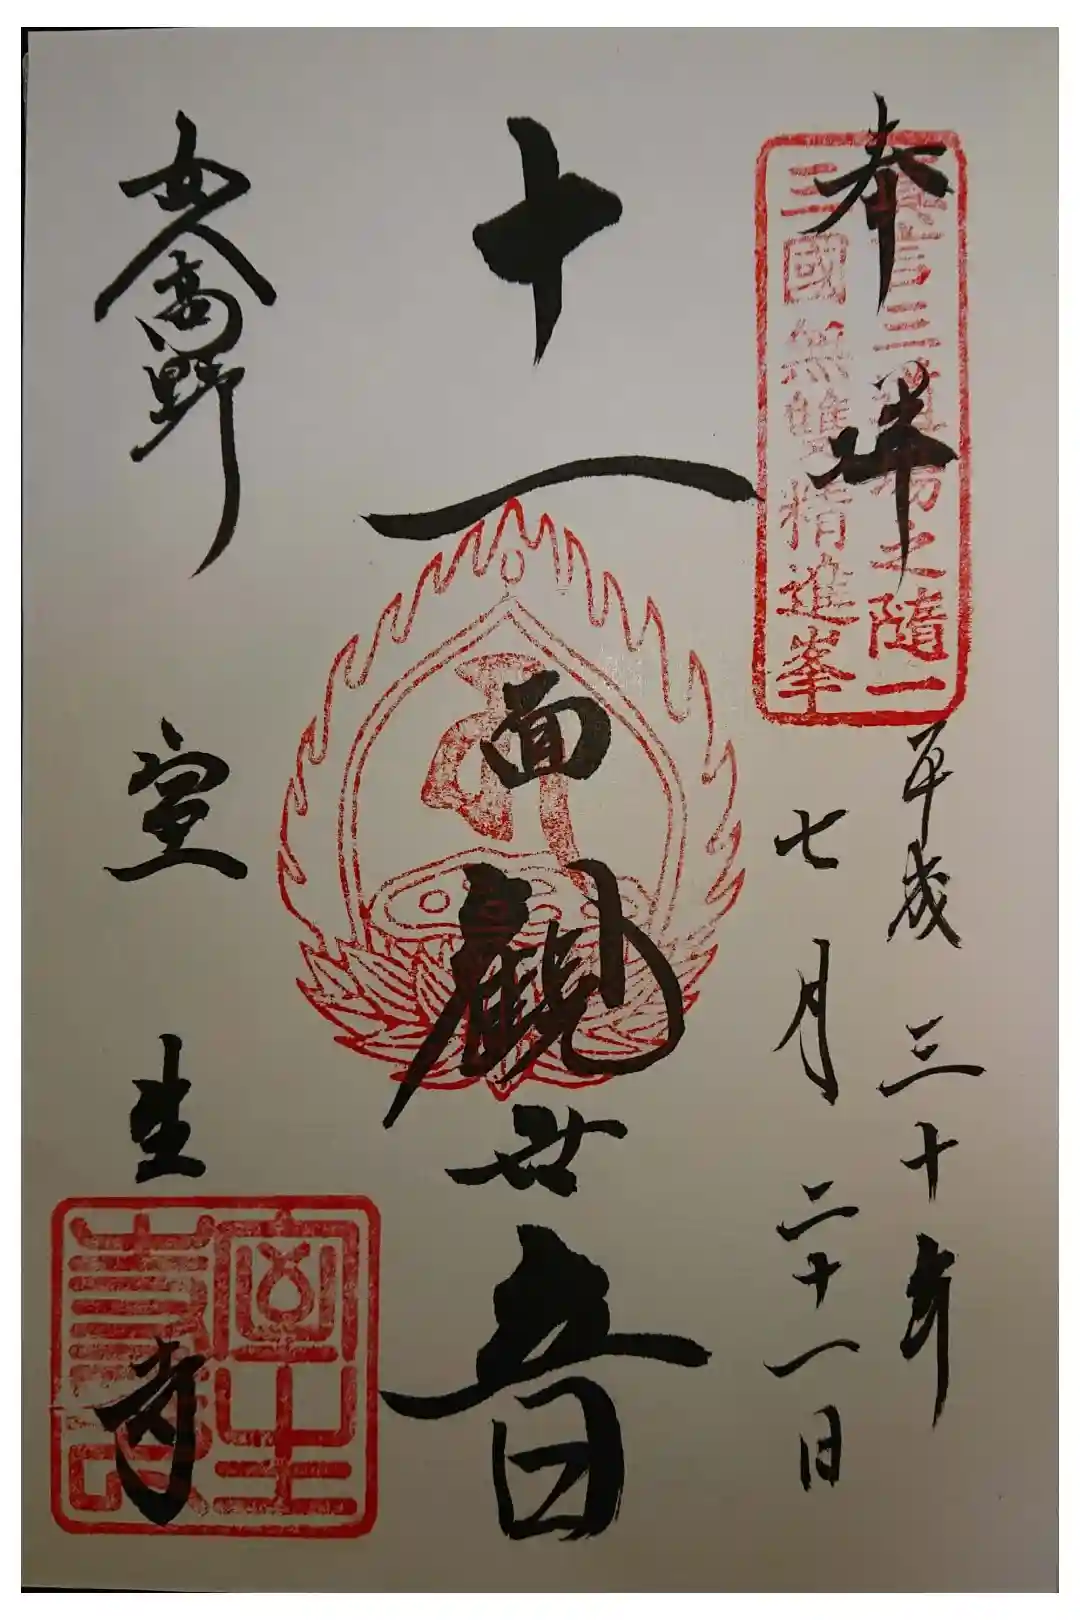 奉拝
眞言三道場之隨一
三國無雙精進峯
平成三十年
七月二十一日
十一面觀世音
女人高野 室生寺
室生
寺印